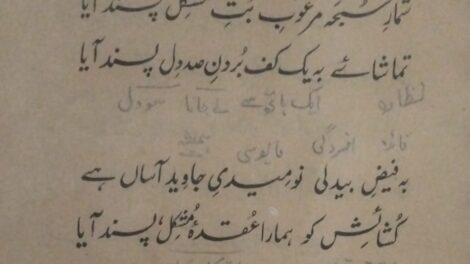 شمارِ سُبحہ مرغوبِ بُتِ مشکل پسند آیا
تماشائے بہ یک کف بُردنِ صد دل پسند آیا
نظارہ ایک ہاتھ سے لے جانا سو دل
افسردگی مایوسی ہمیشہ
بہ فیضِ بیدلی نومیدیِ جاوید آساں ہے
کُشائِش کو ہمارا عُقدۂ مُشکِل، پسند آیا